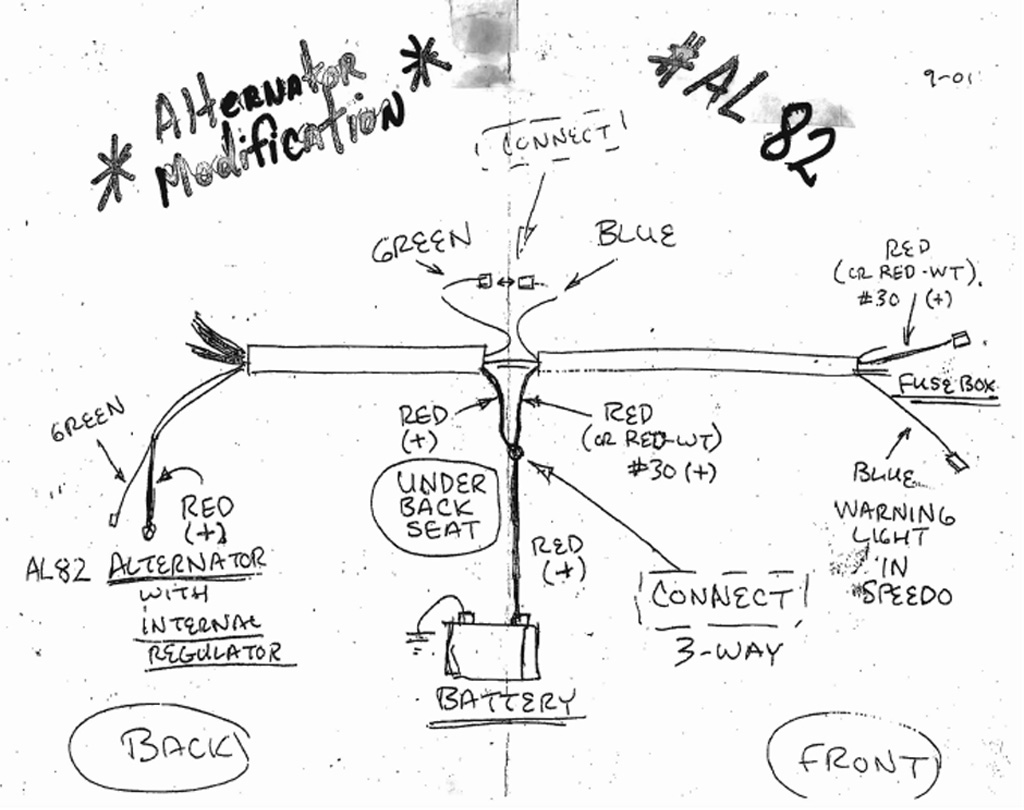 * Alternator
Modification *
#AL 82
9-01
CONNECT
GREEN
BLUE
RED
(OR RED-WT).
#30 (+)
FUSE BOX
GREEN
RED
(+)
RED
(OR RED-WT)
#30 (+)
UNDER
BACK
SEAT
BLUE
WARNING
LIGHT
IN
SPEEDO
RED
(+)
RED
(+)
AL82 ALTERNATOR
WITH
INTERNAL
REGULATOR
CONNECT
3-WAY
BATTERY
BACK
FRONT